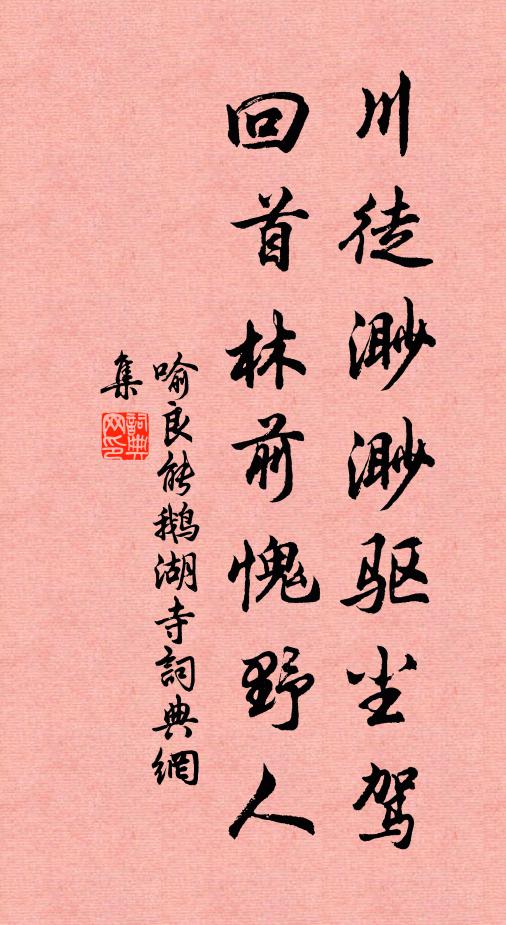 川徒渺渺驱尘驾
回首林前愧野人
喻良能鹅湖寺詞典網
集
詞典網印